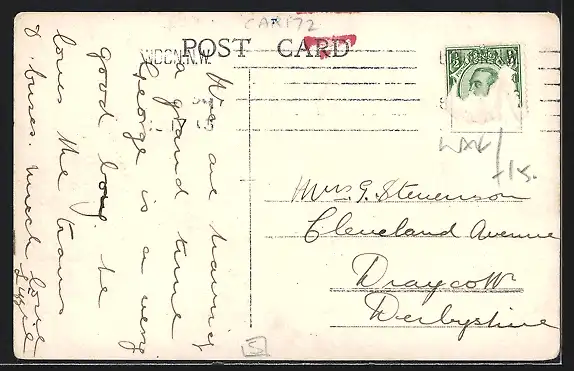 CAR172
POST CARD
LONDON.N.W.
We are having
a grand time
George is a very
good boy. he
loves the trams
& buses. much love
Mrs G. Stevenson
Cleveland Avenue
Draycott
Derbyshire
5